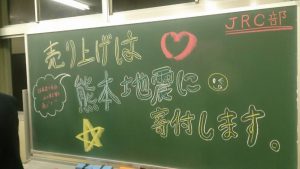 JRC部
売り上げは
熊本地震に
寄付します。